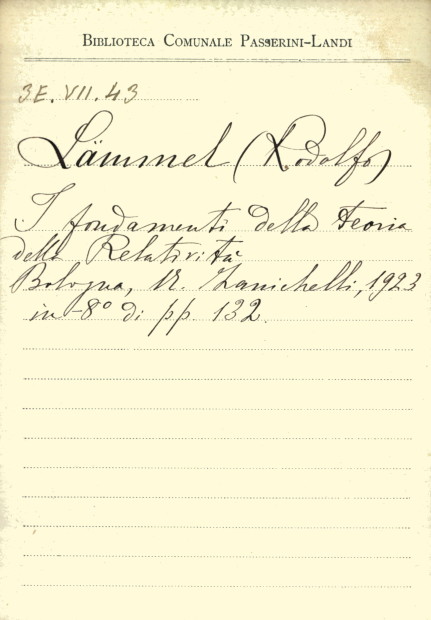 BIBLIOTECA COMUNALE PASSERINI-LANDI
3E. VII. 43
Lämmel (Rodolfo)
I fondamenti della teoria
della Relatività
Bologna, N. Zanichelli, 1923
in-8° di pp. 132.